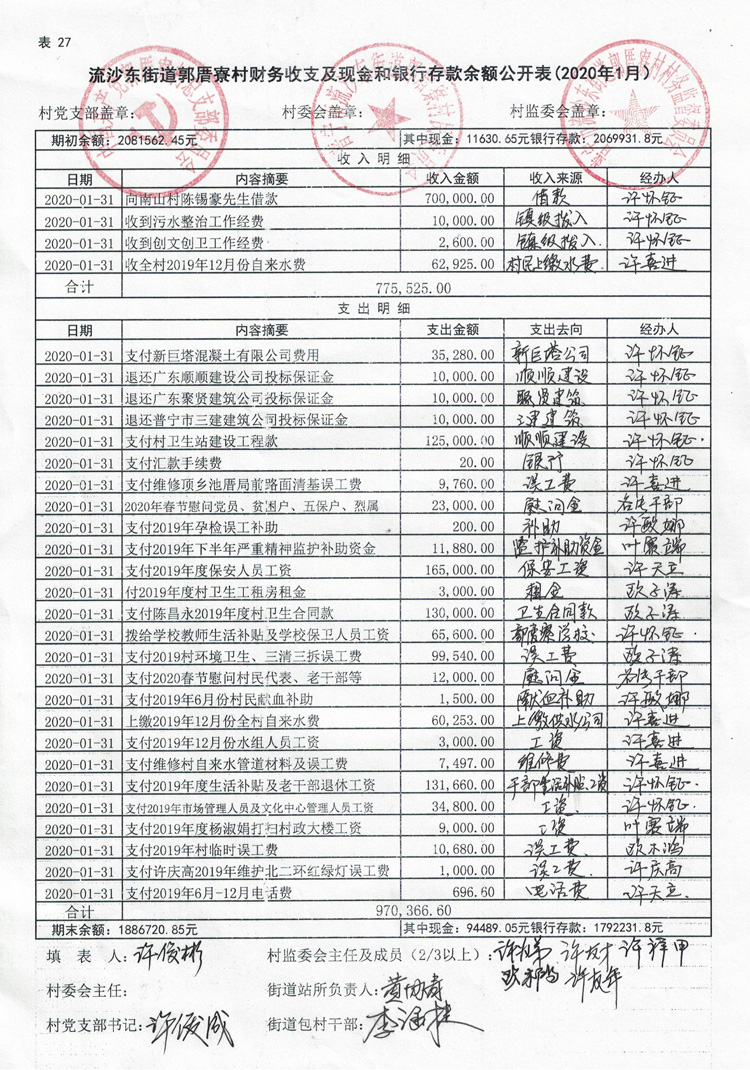 表 27
流沙东街道郭厝寮村财务收支及现金和银行存款余额公开表(2020年1月)
村党支部盖章: 村委会盖章: 村监委会盖章:
期初余额: 2081562.45元 其中现金: 11630.65元银行存款: 2069931.8元
收 入 明 细
日期 内容摘要 收入金额 收入来源 经办人
2020-01-31 向南山村陈锡豪先生借款 700,000.00 借款 许怀钲
2020-01-31 收到污水整治工作经费 10,000.00 镇级拨入 许怀钲
2020-01-31 收到创文创卫工作经费 2,600.00 镇级拨入. 许怀钲
2020-01-31 收全村2019年12月份自来水费 62,925.00 村民上缴水费. 许喜进
合计 775,525.00
支 出 明 细
日期 内容摘要 支出金额 支出去向 经办人
2020-01-31 支付新巨塔混凝土有限公司费用 35,280.00 新巨塔公司 许怀钲
2020-01-31 退还广东顺顺建设公司投标保证金 10,000.00 顺顺建设 许怀钲
2020-01-31 退还广东聚贤建筑公司投标保证金 10,000.00 聚贤建筑 许怀钲
2020-01-31 退还普宁市三建建筑公司投标保证金 10,000.00 三建建筑 许怀钲
2020-01-31 支付村卫生站建设工程款 125,000.00 顺顺建设 许怀钲.
2020-01-31 支付汇款手续费 20.00 银行 许怀钲
2020-01-31 支付维修顶乡池厝局前路面清基误工费 9,760.00 误工费 许喜进
2020-01-31 2020年春节慰问党员、贫困户、五保户、烈属 23,000.00 慰问金 各佐干部
2020-01-31 支付2019年孕检误工补助 200.00 补助 许殿娜
2020-01-31 支付2019年下半年严重精神监护补助资金 11,880.00 监护补助资金 叶赛端
2020-01-31 支付2019年度保安人员工资 165,000.00 保安工资 许天立
2020-01-31 付2019年度村卫生工租房租金 3,000.00 租金 欧子涛
2020-01-31 支付陈昌永2019年度村卫生合同款 130,000.00 卫生合同款 欧子涛
2020-01-31 拨给学校教师生活补贴及学校保卫人员工资 65,600.00 郭厝寮学校 许怀钲.
2020-01-31 支付2019村环境卫生、三清三拆误工费 99,540.00 误工费 欧子涛
2020-01-31 支付2020春节慰问村民代表、老干部等 12,000.00 慰问金 各佐干部
2020-01-31 支付2019年6月份村民献血补助 1,500.00 献血补助 许殿娜
2020-01-31 上缴2019年12月份全村自来水费 60,253.00 上缴供水公司 许喜进
2020-01-31 支付2019年12月份水组人员工资 3,000.00 工资 许喜进
2020-01-31 支付维修村自来水管道材料及误工费 7,497.00 维修费 许喜进
2020-01-31 支付2019年度生活补贴及老干部退休工资 131,660.00 干部生活补贴工资 许怀钲
2020-01-31 支付2019年市场管理人员及文化中心管理人员工资 34,800.00 工资 许怀钲.
2020-01-31 支付2019年度杨淑娟打扫村政大楼工资 9,000.00 工资 叶赛端
2020-01-31 支付2019年村临时误工费 10,680.00 误工费
2020-01-31 支付许庆高2019年维护北二环红绿灯误工费 1,000.00 误工费. 许庆高
2020-01-31 支付2019年6月-12月电话费 696.60 电话费 许天立
合计 970,366.60
期末余额: 1886720.85元 其中现金: 94489.05元银行存款: 1792231.8元
填 表 人: 许俊彬 村监委会主任及成员(2/3以上):
村委会主任: 街道站所负责人:
村党支部书记: 许俊成 街道包村干部: